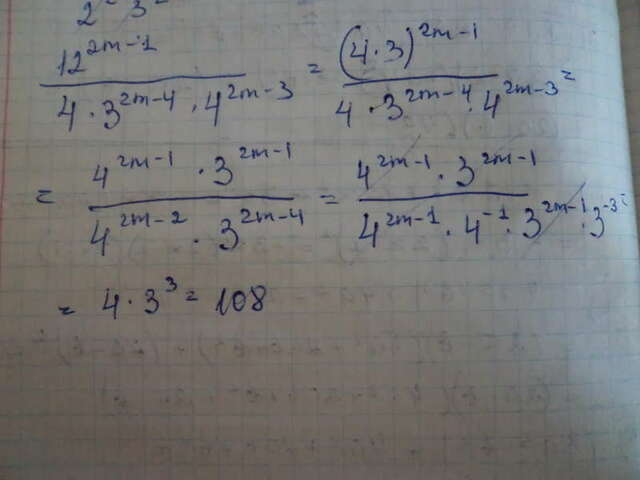 2² 3²
12^{2m-1} / (4 · 3^{2m-4} · 4^{2m-3}) = (4·3)^{2m-1} / (4 · 3^{2m-4} · 4^{2m-3}) =
= (4^{2m-1} · 3^{2m-1}) / (4^{2m-2} · 3^{2m-4}) = (4^{2m-1} · 3^{2m-1}) / (4^{2m-1} · 4^{-1} · 3^{2m-1} · 3^{-3}) =
= 4 · 3³ = 108